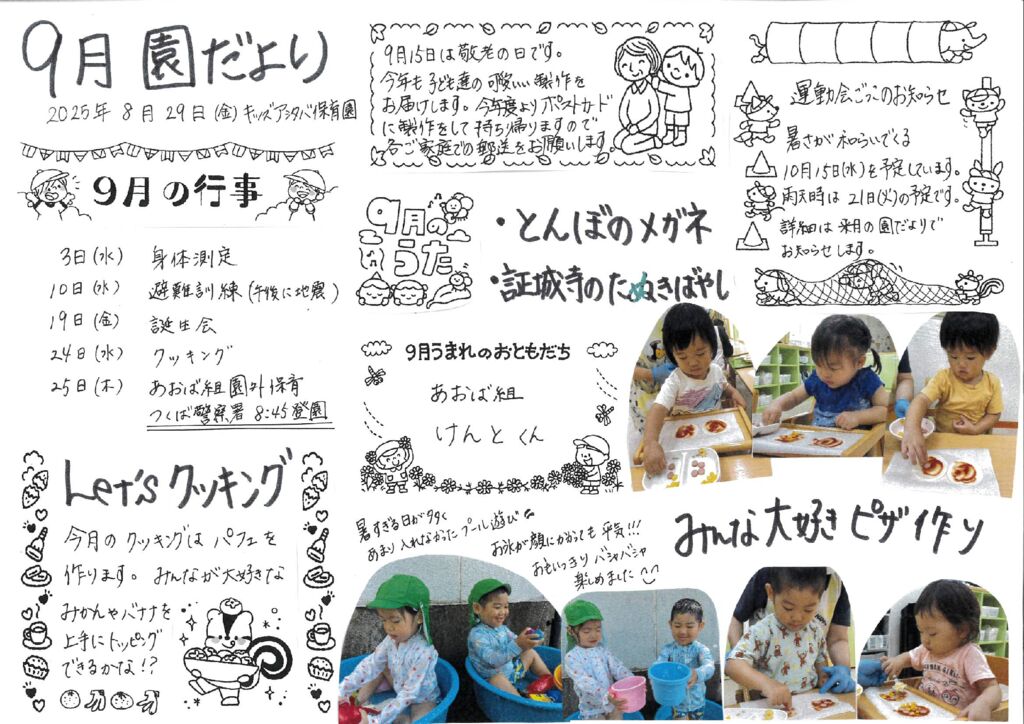 9月園だより
2025年 8月29日(金) キッズアシタバ保育園
9月の行事
3日(水) 身体測定
10日(水) 避難訓練(午後に地震)
19日(金) 誕生会
24日(水) クッキング
25日(木) あおば組園外保育
つくば警察署 8:45登園
Let's クッキング
今月のクッキングは パフェを
作ります。みんなが大好きな
みかんやバナナを
上手にトッピング
できるかな!?
9月15日は敬老の日です。
今年も子ども達の可愛いい製作を
お届けします。今年度よりポストカード
に製作をして持ち帰りますので
各ご家庭での郵送をお願いします。
9月の
うた
・とんぼのメガネ
・証城寺のたぬきばやし
9月うまれのおともだち
あおば組
けんとくん
運動会ごっこのお知らせ
暑さが和らいでくる
10月15日(水)を予定しています。
雨天時は21日(火)の予定です。
詳細は来月の園だよりで
お知らせします。
暑すぎる日が多く
あまり入れなかったプール遊び
お水が顔にかかっても平気!!!
おもいっきりバシャバシャ
楽しめました
みんな大好きピザ作り